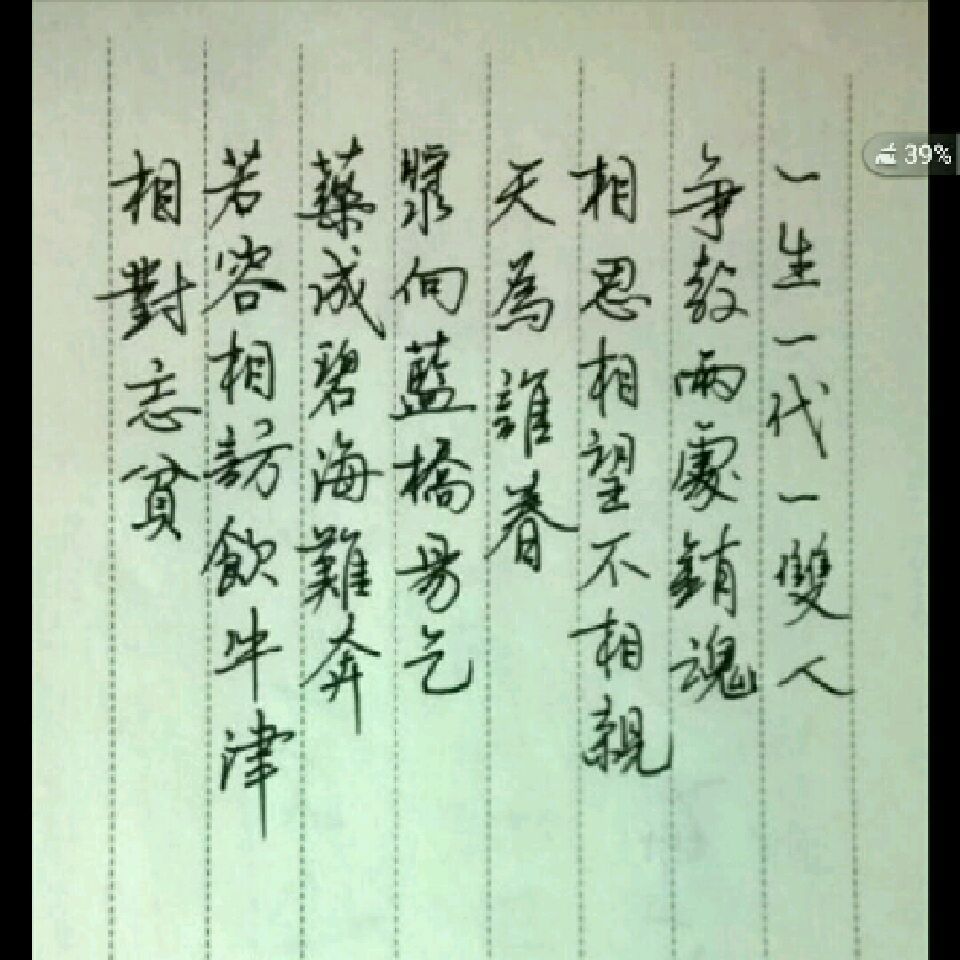 一生一代一雙人
争教兩處銷魂
相思相望不相親
天為誰春
漿向藍橋易乞
藥成碧海難奔
若容相訪飲牛津
相對忘貧
39%